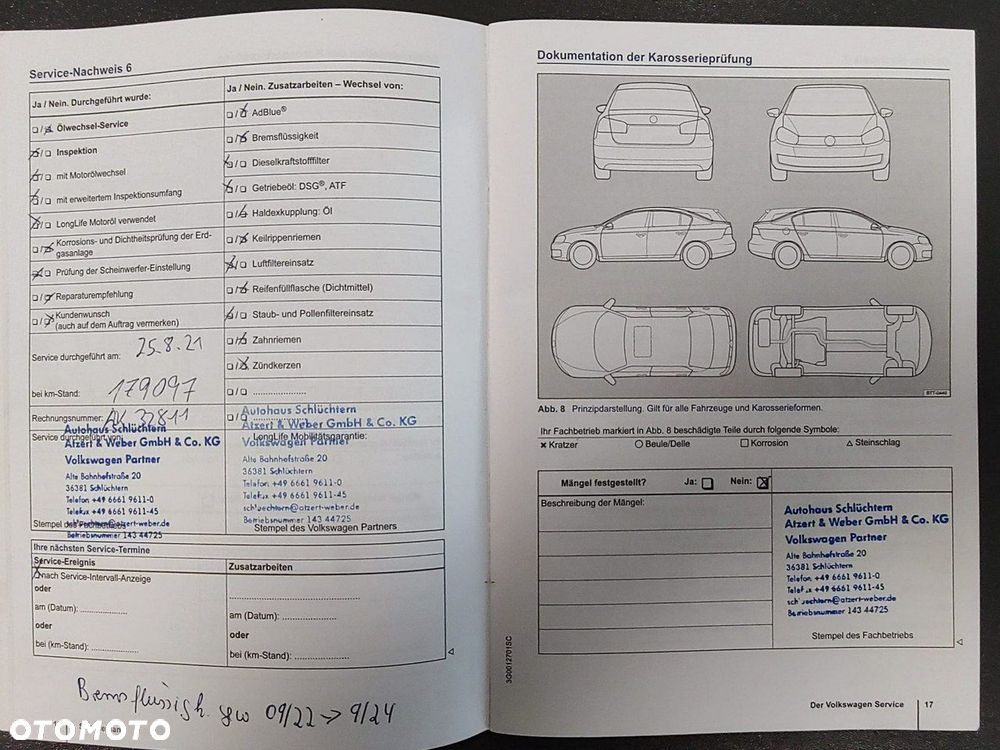 Service-Nachweis 6
Ja / Nein. Durchgeführt wurde:
Ölwechsel-Service
Inspektion
mit Motorölwechsel
mit erweitertem Inspektionsumfang
LongLife Motoröl verwendet
Korrosions- und Dichtheitsprüfung der Erd-
gasanlage
Prüfung der Scheinwerfer-Einstellung
Reparaturempfehlung
Kundenwunsch
(auch auf dem Auftrag vermerken)
Service durchgeführt am: 25.8.21
bei km-Stand: 179097
Rechnungsnummer: AK 32811
Service durchgeführt von:
Autohaus Schlüchtern
Atzert & Weber GmbH & Co. KG
Volkswagen Partner
Alte Bahnhofstraße 20
36381 Schlüchtern
Telefon +49 6661 9611-0
Telefax +49 6661 9611-45
schluechtern@atzert-weber.de
Betriebsnummer 143 44725
Stempel des Fachbetriebs
Ja / Nein. Zusatzarbeiten – Wechsel von:
AdBlue®
Bremsflüssigkeit
Dieselkraftstofffilter
Getriebeöl: DSG®, ATF
Haldexkupplung: Öl
Keilrippenriemen
Luftfiltereinsatz
Reifenfüllflasche (Dichtmittel)
Staub- und Pollenfiltereinsatz
Zahnriemen
Zündkerzen
Autohaus Schlüchtern
Atzert & Weber GmbH & Co. KG
LongLife Mobilitätsgarantie:
Volkswagen Partner
Alte Bahnhofstraße 20
36381 Schlüchtern
Telefon +49 6661 9611-0
Telefax +49 6661 9611-45
schluechtern@atzert-weber.de
Betriebsnummer 143 44725
Stempel des Volkswagen Partners
Ihre nächsten Service-Termine
Service-Ereignis
nach Service-Intervall-Anzeige
oder
am (Datum): ..................
oder
bei (km-Stand): ..................
Zusatzarbeiten
am (Datum): ..................
oder
bei (km-Stand): ..................
Bremsflüssigk. 09/22 → 9/24
Dokumentation der Karosserieprüfung
BTT-0440
Abb. 8 Prinzipdarstellung. Gilt für alle Fahrzeuge und Karosserieformen.
Ihr Fachbetrieb markiert in Abb. 8 beschädigte Teile durch folgende Symbole:
× Kratzer ○ Beule/Delle □ Korrosion △ Steinschlag
Mängel festgestellt? Ja: Nein:
Beschreibung der Mängel:
Autohaus Schlüchtern
Atzert & Weber GmbH & Co. KG
Volkswagen Partner
Alte Bahnhofstraße 20
36381 Schlüchtern
Telefon +49 6661 9611-0
Telefax +49 6661 9611-45
schluechtern@atzert-weber.de
Betriebsnummer 143 44725
Stempel des Fachbetriebs
3G0012701SC
Der Volkswagen Service 17
OTOMOTO